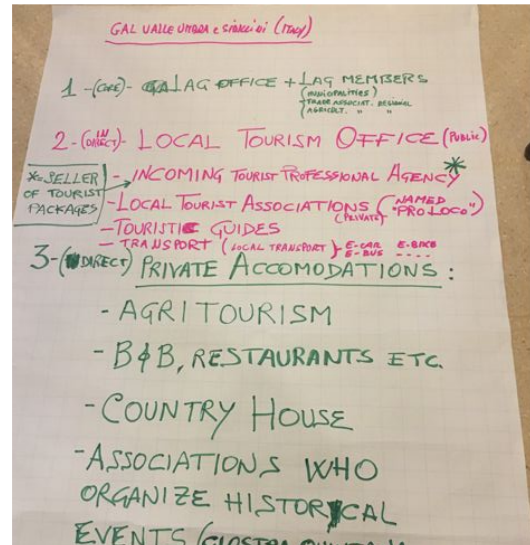 GAL VALLE UMBRA e SIBILLINI (ITALY)
1 -(CORE)- LAG OFFICE + LAG MEMBERS
(MUNICIPALITIES)
-TRADE ASSOCIAT. REGIONAL
AGRICOLT. " "
2-(IN DIRECT)- LOCAL TOURISM OFFICE (PUBLIC)
*=SELLER OF TOURIST PACKAGES
- INCOMING TOURIST PROFESSIONAL AGENCY *
-LOCAL TOURIST ASSOCIATIONS (PRIVATE) (NAMED "PRO LOCO")
-TOURISTIC GUIDES
- TRANSPORT (LOCAL TRANSPORT) - E-CAR E-BIKE
E-BUS ....
3-(DIRECT) PRIVATE ACCOMODATIONS :
- AGRITOURISM
- B&B, RESTAURANTS ETC.
- COUNTRY HOUSE
-ASSOCIATIONS WHO
ORGANIZE HISTORYCAL
EVENTS